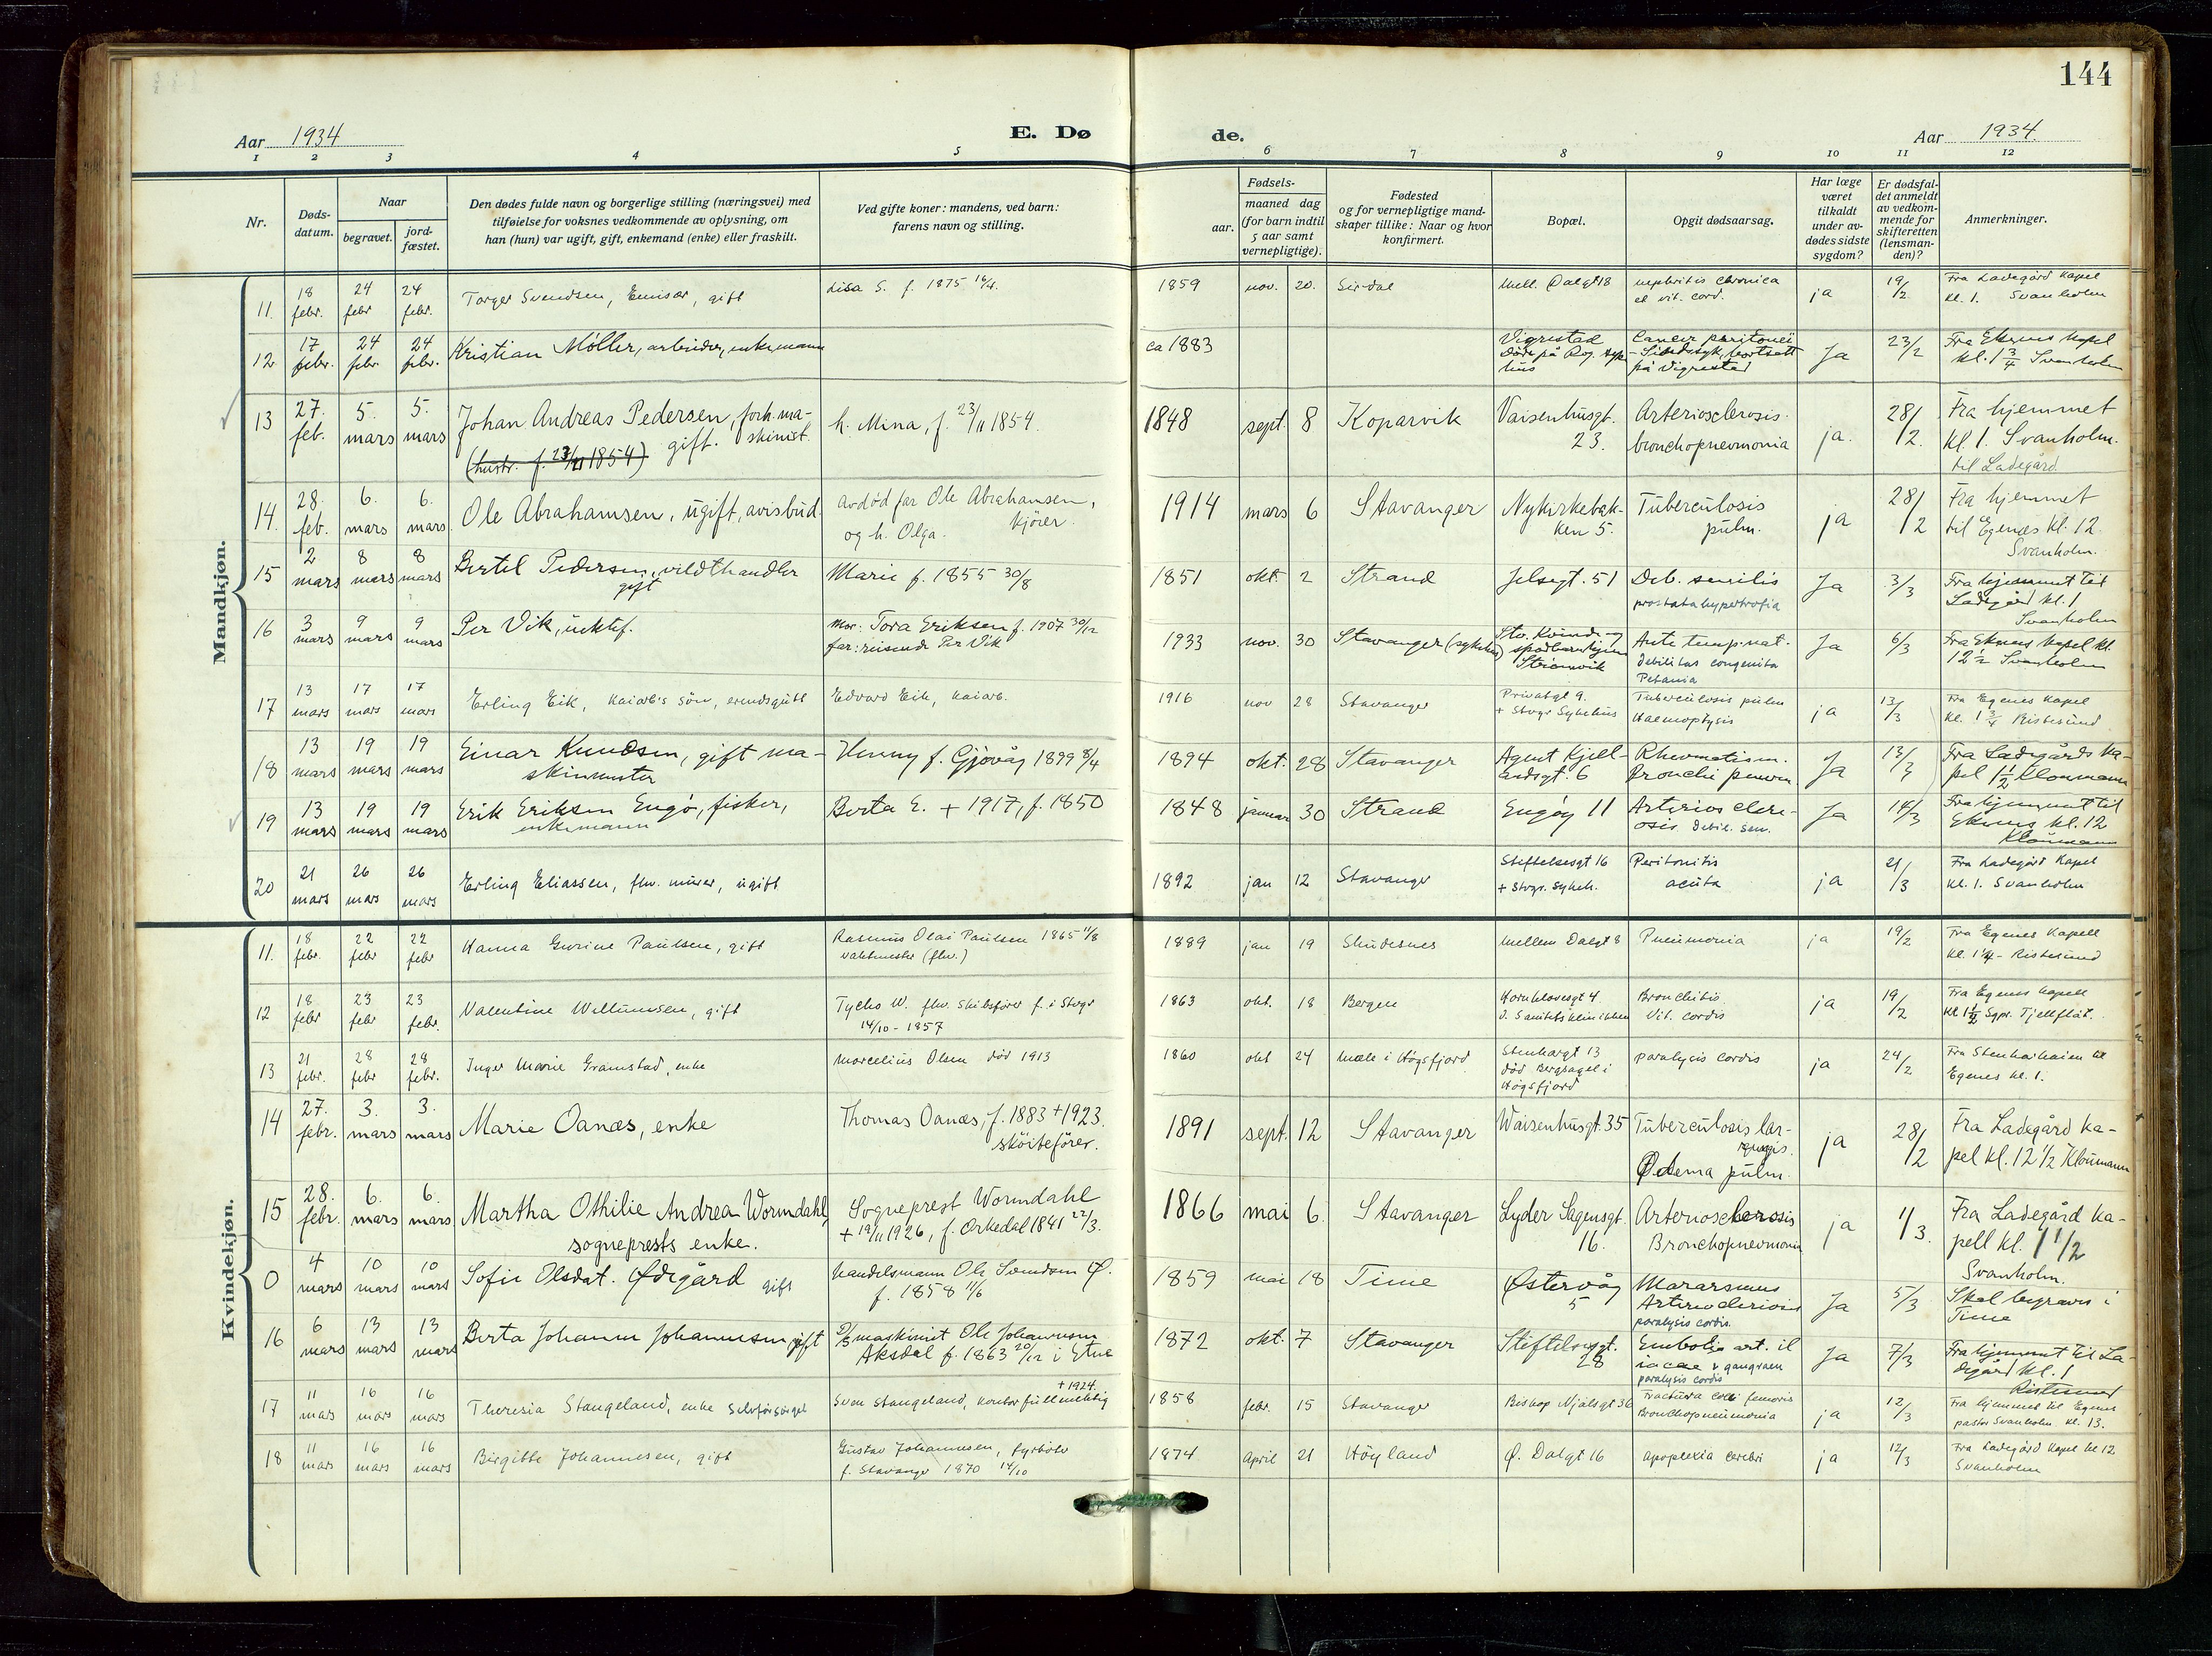 144
Aar 1934
E. Dø
de.
Aar 1934.
1 2 3 4 5 6 7 8 9 10 11 12
Nr.
Døds-
datum.
Naar
begravet.
jord-
fæstet.
Den dødes fulde navn og borgerlige stilling (næringsvei) med
tilføielse for voksnes vedkommende av oplysning, om
han (hun) var ugift, gift, enkemand (enke) eller fraskilt.
Ved gifte koner: mandens, ved barn:
farens navn og stilling.
Fødsels-
aar.
maaned dag
(for barn indtil
5 aar samt
vernepligtige).
Fødested
og for vernepligtige mand-
skaper tillike: Naar og hvor
konfirmert.
Bopæl.
Opgit dødsaarsag.
Har læge
været
tilkaldt
under av-
dødes sidste
sygdom?
Er dødsfal-
det anmeldt
av vedkom-
mende for
skifteretten
(lensman-
den)?
Anmerkninger.
Mandkjøn.
11. 18 febr. 24 febr 24 febr. Torger Svendsen, Emisær, gift Lisa S. f. 1875 16/4. 1859 nov. 20. Sirdal Mell. Dalgt 18 nephritis chronica
el vit. cord. ja 19/2 Fra Ladegård Kapel
kl. 1. Svanholm
12. 17 febr. 24 febr. 24 febr. Kristian Møller, arbeider, enkemann ca 1883 Vigrestad
Døde på Rog. syke-
hus Cancer peritonei
- Sindssyk, bortsatt
på Vigrestad Ja 23/2 Fra Ekenes kapel
kl. 1 3/4 Svanholm
13 27. feb. 5. mars 5. mars Johan Andreas Pedersen, forh. ma-
skinist. gift.
(hustr. f. 23/11 1854) h. Mina, f. 23/11 1854. 1848 sept. 8 Kopervik Vaisenhusgt.
23. Arteriosclerosis.
bronchopnevmonia ja. 28/2. Fra hjemmet
kl 1. Svanholm.
til Ladegård
14. 28. feb. 6. mars 6. mars Ole Abrahamsen, ugift, avisbud. avdød far Ole Abrahamsen,
kjører.
og h. Olga. 1914 mars 6 Stavanger Nykirkebak-
ken 5. Tuberculosis
pulm. ja 28/2 Fra hjemmet
til Egenæs kl. 12.
Svanholm.
15 2 mars 8 mars 8 mars Bertel Pedersen, vildthandler
gift Marie f. 1855 30/8 1851 okt. 2 Strand Jelsagt. 51 Deb. senilis
prostatahypertrofia Ja 3/3 Fra hjemmet til
Ladegård kl. 1
Svanholm
16 3 mars 9 mars 9 mars Per Vik, uektef. Mor: Tora Eriksen f. 1907 30/12
far: reisende Per Vik 1933 nov. 30 Stavanger (sykehus) Stv. Kvinde- og
spædbarnhjem
Strømvik Ante temp. nat.
Debilitas congenita
Petania Ja 6/3 Fra Ekenes kapel kl.
12 1/2 Svanholm
17 13 mars 17 mars 17 mars Erling Eik, kaiarb's søn, erendsgutt Edvard Eik, kaiarb. 1916 nov 28 Stavanger Privatgt 9.
+ Stvgr Sykehus Tuberculosis pulm
Haemoptysis ja 13/3 Fra Egenes Kapel
kl. 1 3/4 Ristesund
18 13 mars 19 mars 19 mars Einar Knudsen, gift ma-
skinmester Henny f. Gjøvåg 1899 8/4 1894 okt. 28 Stavanger Agent Kjell-
andsgt. 6 Rheumatism.
Bronchi pneum. Ja 13/3 Fra Ladegårds ka-
pel 1 1/2 Kloumann
19 13 mars 19 mars 19 mars Erik Eriksen Engø, fisker,
enkemann Berta E. + 1917, f. 1850 1848 januar 30 Strand Engøy 11 Arterios clere-
osis debil. sen. Ja 14/3 Fra hjemmet til
Ekenes kl. 12
Kloumann
20 21 mars 26 mars 26 mars Erling Eliassen, fhv. murer, ugift 1892 jan 12 Stavanger Stiftelsesgt 16
+ Stvgr. Sykeh. Peritonitis
acuta ja 21/3 Fra Ladegård Kapel
kl. 1. Svanholm
Kvindekjøn.
11. 18 febr. 22 febr 22 febr Hanna Gurine Paulsen, gift Rasmus Olai Paulsen 1865 11/8
vaktmester (fhv.) 1889 jan 19 Skudesnes Mellem Dalgt 8 Pneumonia ja 19/2 Fra Egenes Kapell
kl. 1 1/4 - Ristesund
12 18 febr 23 febr 23 febr. Valentine Willumsen, gift Tycho W. fhv. Skibsfører f. i Stvgr
14/10 - 1857 1863 okt. 18 Bergen Hornkloresgt 4.
D. Sanitetsklinikken Bronchitis
Vit. cordis ja 19/2 Fra Egenes Kapell
kl 1 1/2 Sgpr. Tjeltflåt.
13 21 febr. 28 febr 28 febr. Inger Marie Gramstad, enke Marcelius Olsen død 1913 1860 okt 24 Mæle i Høgsfjord Stenhargt 13
død Bergsagel i
Høgsfjord paralysis cordis ja 24/2 Fra Stenkarkaien til
Egenes kl. 1.
14 27. febr. 3. mars 3. mars Marie Oanæs, enke Thomas Oanæs, f. 1883 + 1923.
skøitefører. 1891 sept. 12 Stavanger Waisenhusgt. 35 Tuberculosis lar-
yngis.
Ødema pulm. ja 28/2 Fra Ladegård ka-
pel kl. 12 1/2 Kloumann
15 28. febr. 6. mars 6. mars Martha Othilie Andrea Wormdahl,
sogneprests enke. Sogneprest Wormdahl
+ 19/11 1926, f. Orkedal 1841 22/3. 1866 mai 6. Stavanger Lyder Sagensgt.
16. Arteriosclerosis
Bronchopnevmonia ja 1/3. Fra Ladegård ka-
pell kl. 1 1/2
Svanholm.
0 4 mars 10 mars 10 mars Sofie Olsdat. Ødegård gift Handelsmann Ole Svendsen Ø.
f. 1858 11/6 1859 mai 18 Time Østervåg
5 Mararsmus
paralysis cordis. Ja 5/3 Skal begraves i
Time
16 6 mars 13 mars 13 mars Berta Johanne Johannesen, gift maskinist Ole Johannesen
Aksdal f. 1863 20/12 i Etne 1872 okt. 7 Stavanger Stiftelsesgt.
28 Emboli art. il
iacae & gangraen
paralysis cordis Ja 7/3 Fra hjemmet til La-
degård kl. 1
Ristesund
17 11 mars 16 mars 16 mars Theresia Stangeland, enke Selvforsørget + 1924.
Sven Stangeland, kontorfullmektig 1858 febr. 15 Stavanger Biskop Njålsgt 36 Fractura colli femoris
Bronchopneumonia ja 12/3 Fra hjemmet til Egenes
pastor Svanholm kl. 13.
18 11 mars 16 mars 16 mars Birgitte Johannesen, gift Gustav Johannesen, fyrbøter
f. Stavanger 1870 14/10 1874 April 21 Høyland Ø. Dalgt 16 apoplexia cerebri ja 12/3 Fra Ladegård Kapel kl 12
Svanholm